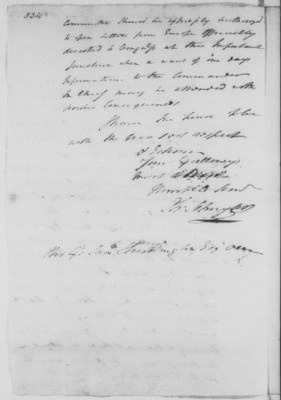 334
Committee should be expressly authorized
to open Letters from Europe officially
directed to Congress at this Important
Juncture when a want of one days
Information to the Commander
in Chief may be attended with
serious Consequences
I have the honor to be
with the greatest respect
& Esteem
Your Excellencys
most
Humble Servt
His Exy Saml Huntington Esqr